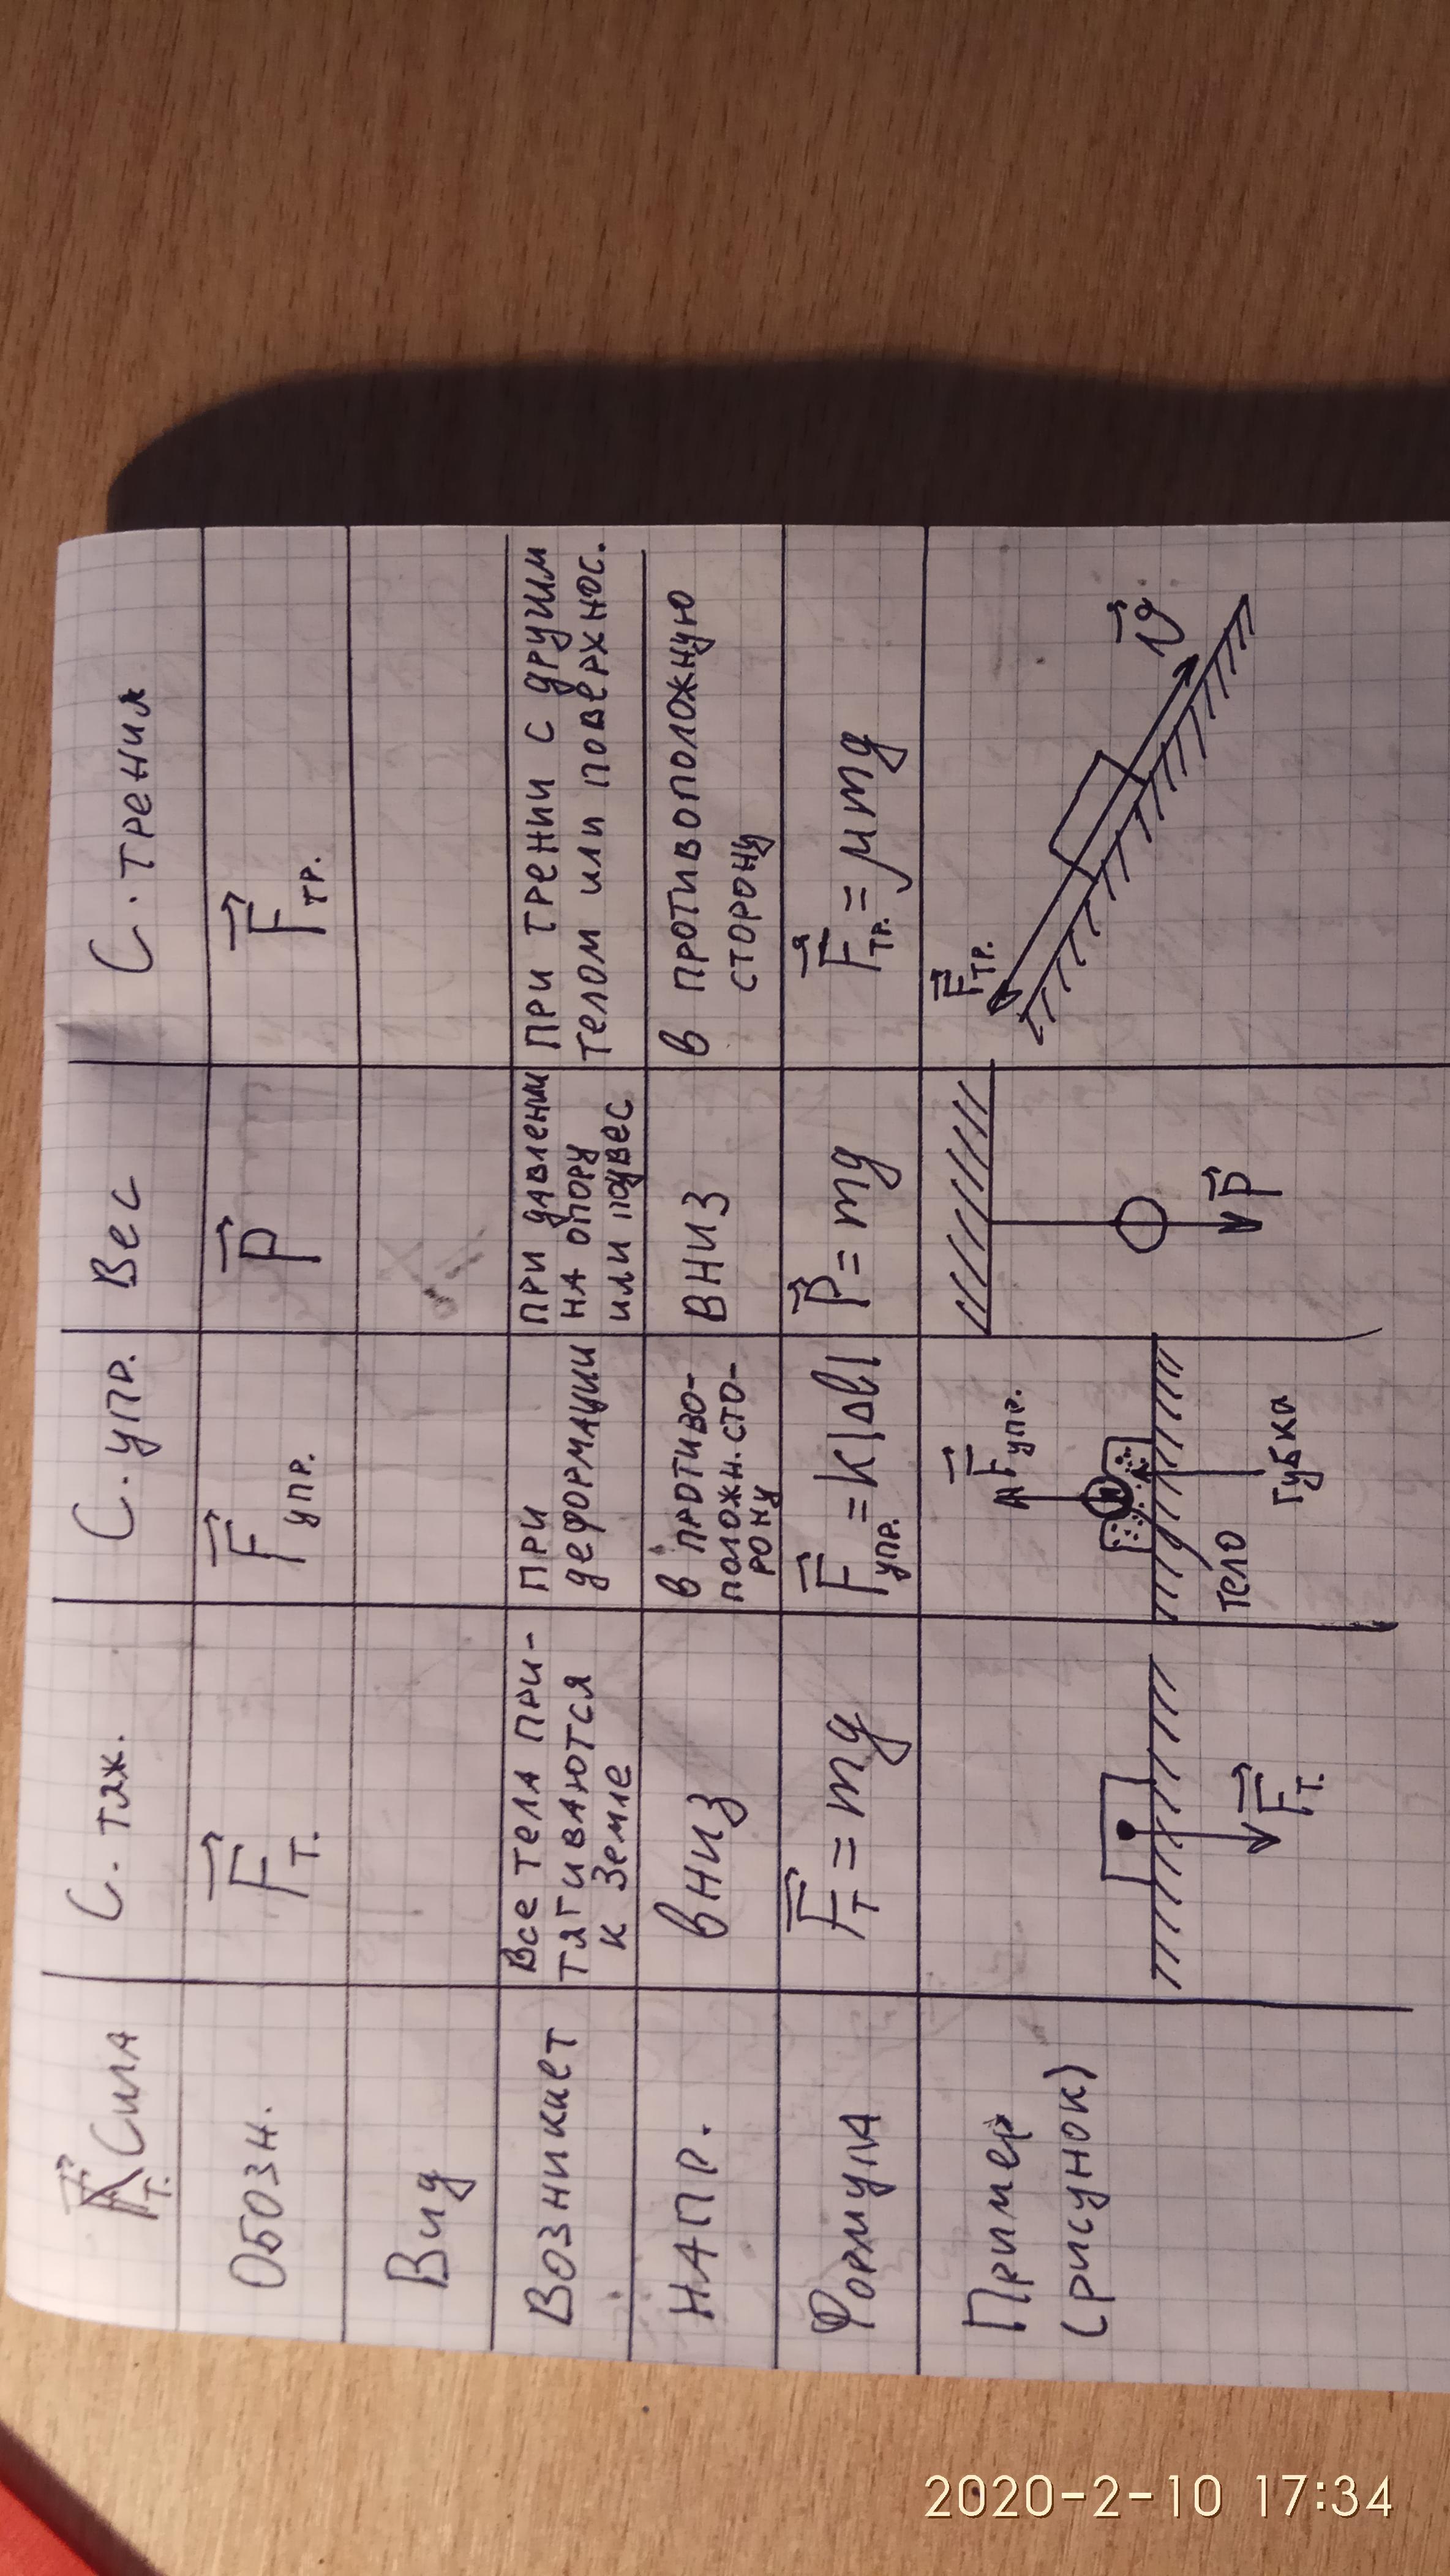 Сила С. тяж. С. упр. Вес С. трения
Обозн. F⃗т. F⃗упр. P⃗ F⃗тр.
Вид
Возникает
Все тела при-
тягиваются
к Земле
при
деформации
при давлении
на опору
или подвес
при трении с другим
телом или поверхнос.
напр.
вниз
в противо-
положн. сто-
рону
вниз
в противоположную
сторону
Формула F⃗т = mg F⃗упр. = k|Δl| P⃗ = mg F⃗тр. = μmg
Пример
(рисунок)
F⃗т.
F⃗упр.
Тело
губка
P⃗
F⃗тр.
v⃗
2020-2-10 17:34